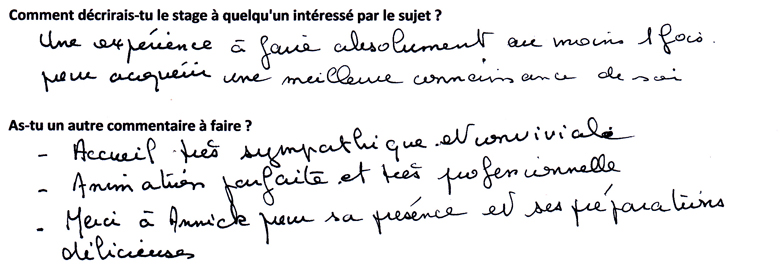 Comment décrirais-tu le stage à quelqu'un intéressé par le sujet ?
Une expérience à faire absolument au moins 1 fois.
pour acquérir une meilleure connaissance de soi
As-tu un autre commentaire à faire ?
- Accueil très sympathique et conviviale
- Animation parfaite et très professionnelle
- Merci à Annick pour sa présence et ses préparations
délicieuses